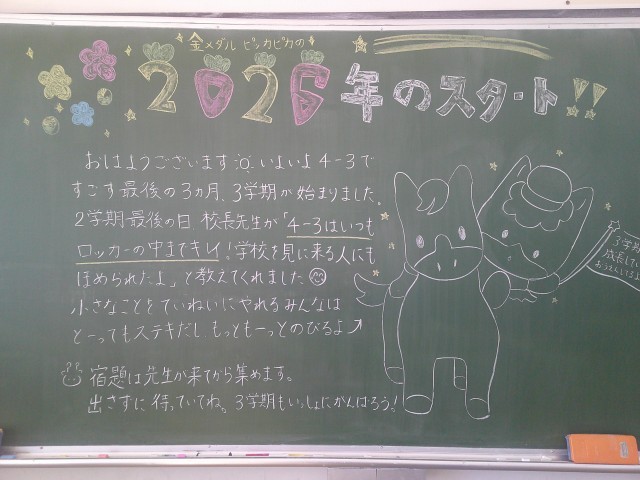 金メダル ピッカピカの
2026年のスタート!!
おはようございます いよいよ4-3で
すごす最後の3ヵ月、3学期が始まりました。
2学期最後の日 校長先生が「4-3はいつも
ロッカーの中までキレイ!学校を見に来る人にも
ほめられたよ」と教えてくれました
小さなことをていねいにやれるみんなは
とーってもステキだし もっともーっとのびるよ↗
宿題は先生が来てから集めます。
出さずに待っていてね。3学期もいっしょにがんばろう!
3学期
成長して